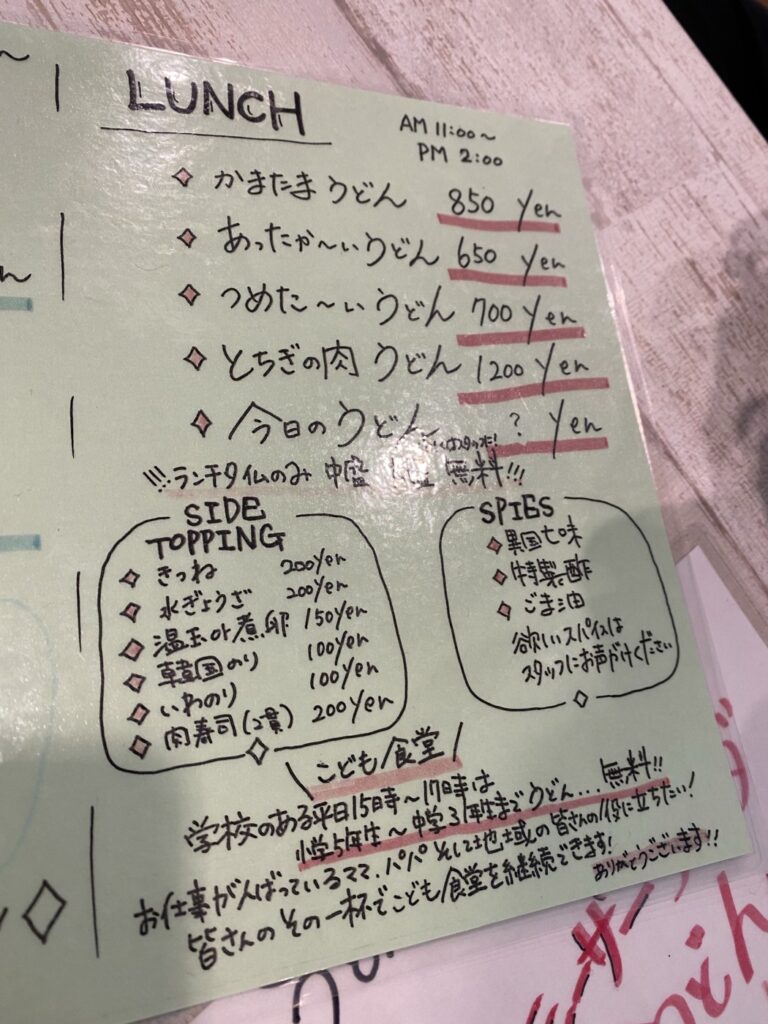 LUNCH
AM 11:00~
PM 2:00
かまたまうどん 850 Yen
あったか~いうどん 650 Yen
つめた~いうどん 700 Yen
とちぎの肉うどん 1200 Yen
今日のうどん ? Yen
ランチタイムのみ 中盛 無料!!!
SIDE
TOPPING
きつね 200Yen
水ぎょうざ 200Yen
温玉or煮卵 150Yen
韓国のり 100Yen
いわのり 100Yen
肉寿司(2貫) 200Yen
SPIES
異国七味
特製酢
ごま油
欲しいスパイスは
スタッフにお声がけください
\こども食堂/
学校のある平日15時~17時は
小学5年生~中学3年生までうどん...無料!!
お仕事がんばっているママ、パパそして地域の皆さんの役に立ちたい!
皆さんのその一杯でこども食堂を継続できます!
ありがとうございます!!